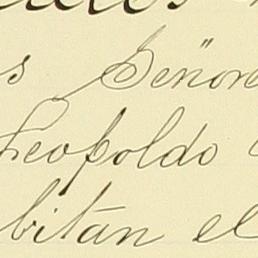 s Señore
Leopoldo
bitan el